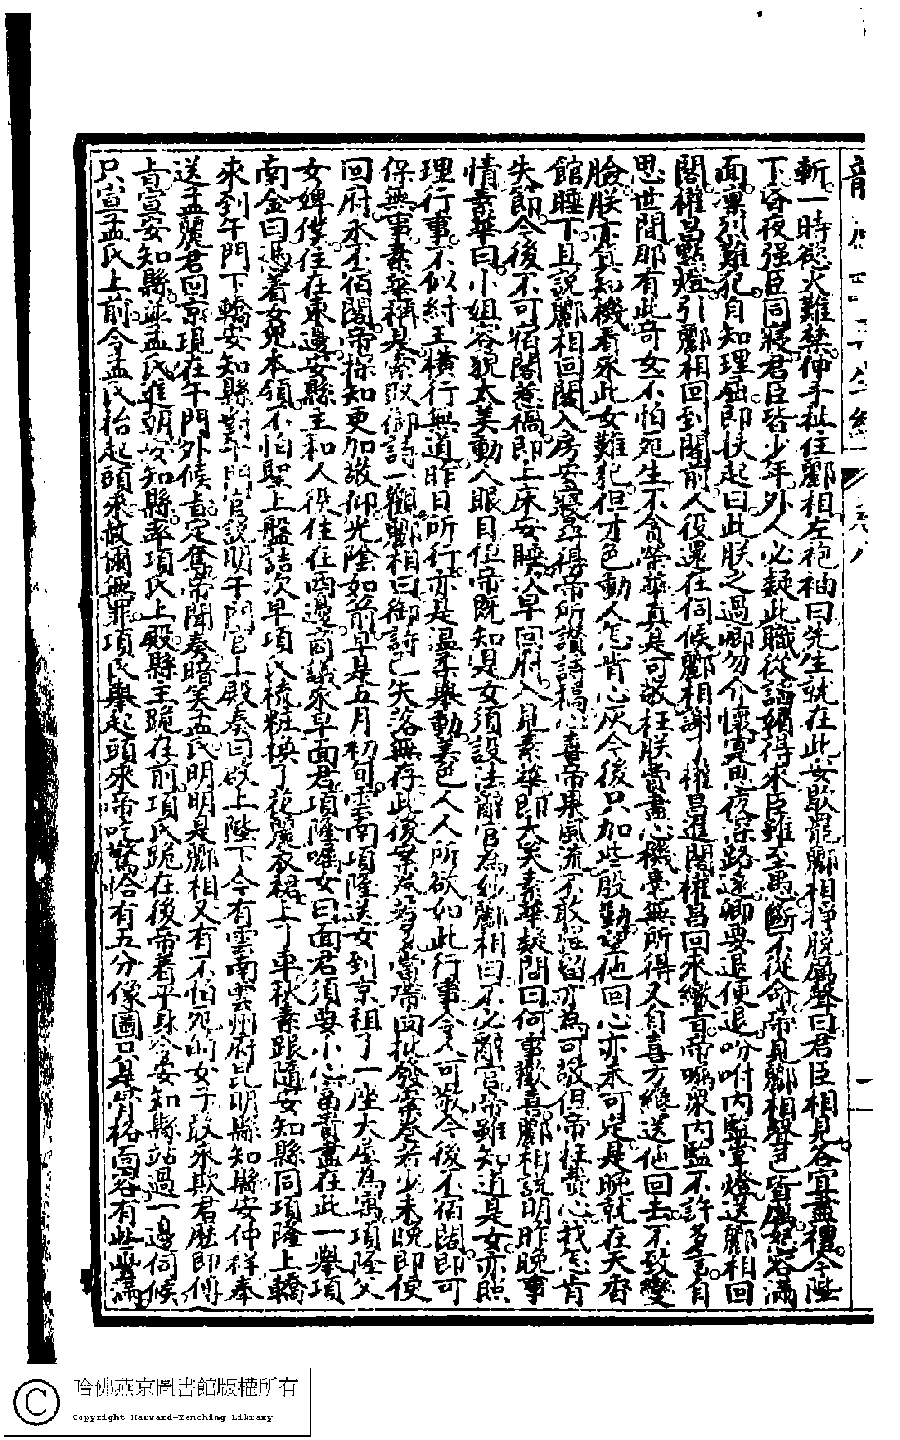 斬一時慾火難禁伸手扯住酈相左袍袖曰先生就在此安歇罷酈相掙脫厲聲曰君臣相見各宜盡禮今陛
下昏夜强臣同寢君臣皆少年外人必疑此職從諂媚得來臣雖至愚斷不從命帝見酈相聲色皆厲怒容滿
面凜烈難犯自知理屈即扶起曰此朕之過卿勿介懷寔思夜深路遠卿要退便退吩咐內監掌燈送酈相回
閣權昌點燈引酈相回到閣前人役還在伺候酈相謝了權昌進閣權昌回來繳旨帝囑衆內監不許多言自
思世間那有此奇女不怕死生不貪榮華真是可敬枉朕費盡心機毫無所得又自喜方纔送他回去不致變
臉朕亦真知機看來此女難犯但才色動人怎肯心灰今後只加些殷勤望他回心亦未可定是晚就在天香
館睡下且說酈相回閣入房安寢再得帝所讚詩稿心喜帝果風流不敢强留亦為可敬但帝枉費心我怎肯
失節今後不可宿閣惹禍即上床安睡次早回府入見素華即大笑素華疑問曰何事歡喜酈相說明昨晚事
情素華曰小姐容貌太美動人眼目但帝既知是女須設法辭官為妙酈相曰不必辭官帝雖知道是女亦照
理行事不似紂王橫行無道昨日所行亦是溫柔舉動美色人人所欲如此行事令人可敬今後不宿閣即可
保無事素華稱是索取御詩一觀酈相曰御詩已失落無存此後案卷若多當帶回批發案卷若少未晚即便
回府永不宿閣帝探知更加敬仰光陰如箭早是五月初旬雲南項隆送女到京租了一座大屋為寓項隆父
女婢僕住在東邊安縣主和人役住在西邊商議來早面君項隆囑女曰面君須要小心富貴盡在此一舉項
南金曰憑着女兒本領不怕聖上盤詰次早項氏梳粧換了花麗衣裙上了車秋素跟隨安知縣同項隆上轎
來到午門下轎安知縣對午門官說明午門官上殿奏曰啟上陛下今有雲南雲州府昆明縣知縣安仲祥奉
送孟麗君回京現在午門外候旨定奪帝聞奏暗笑孟氏明明是酈相又有不怕死的女子敢來欺君歷即傳
旨宣安知縣並孟氏進朝安知縣率項氏上殿縣主跪在前項氏跪在後帝着平身令安知縣站過一邊伺候
只宣孟氏上前令孟氏抬起頭來恕爾無罪項氏舉起頭來帝吃驚恰有五分像圖只是骨格面容有些此滿
哈佛燕京圖書館版權所有
Copyright Harvard-Yenching Library